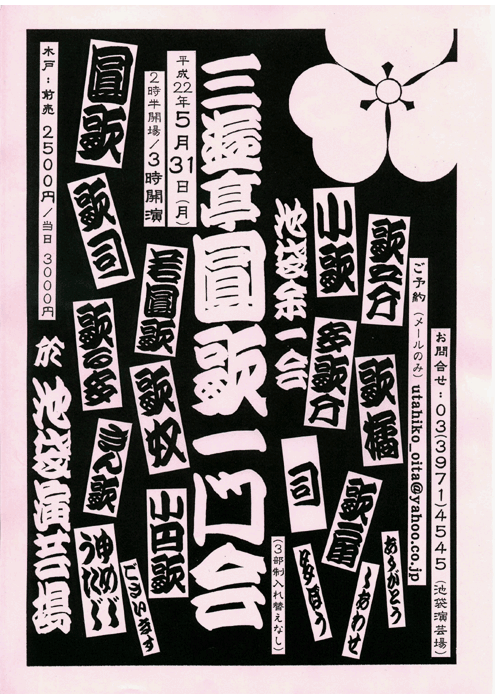 お問合せ：03(3971)4545（池袋演芸場）
ご予約（メールのみ）utahiko_oita@yahoo.co.jp
池袋余一会
三遊亭圓歌一門会
平成22年5月31日（月）
2時半開場／3時開演
木戸：前売 2500円／当日 3000円
於 池袋演芸場
（3部制入れ替えなし）
小歌
多歌介
歌橘
司
圓歌
歌司
若圓歌
歌る多
歌奴
きん歌
小円歌
ございます
ありがとう
しあわせ